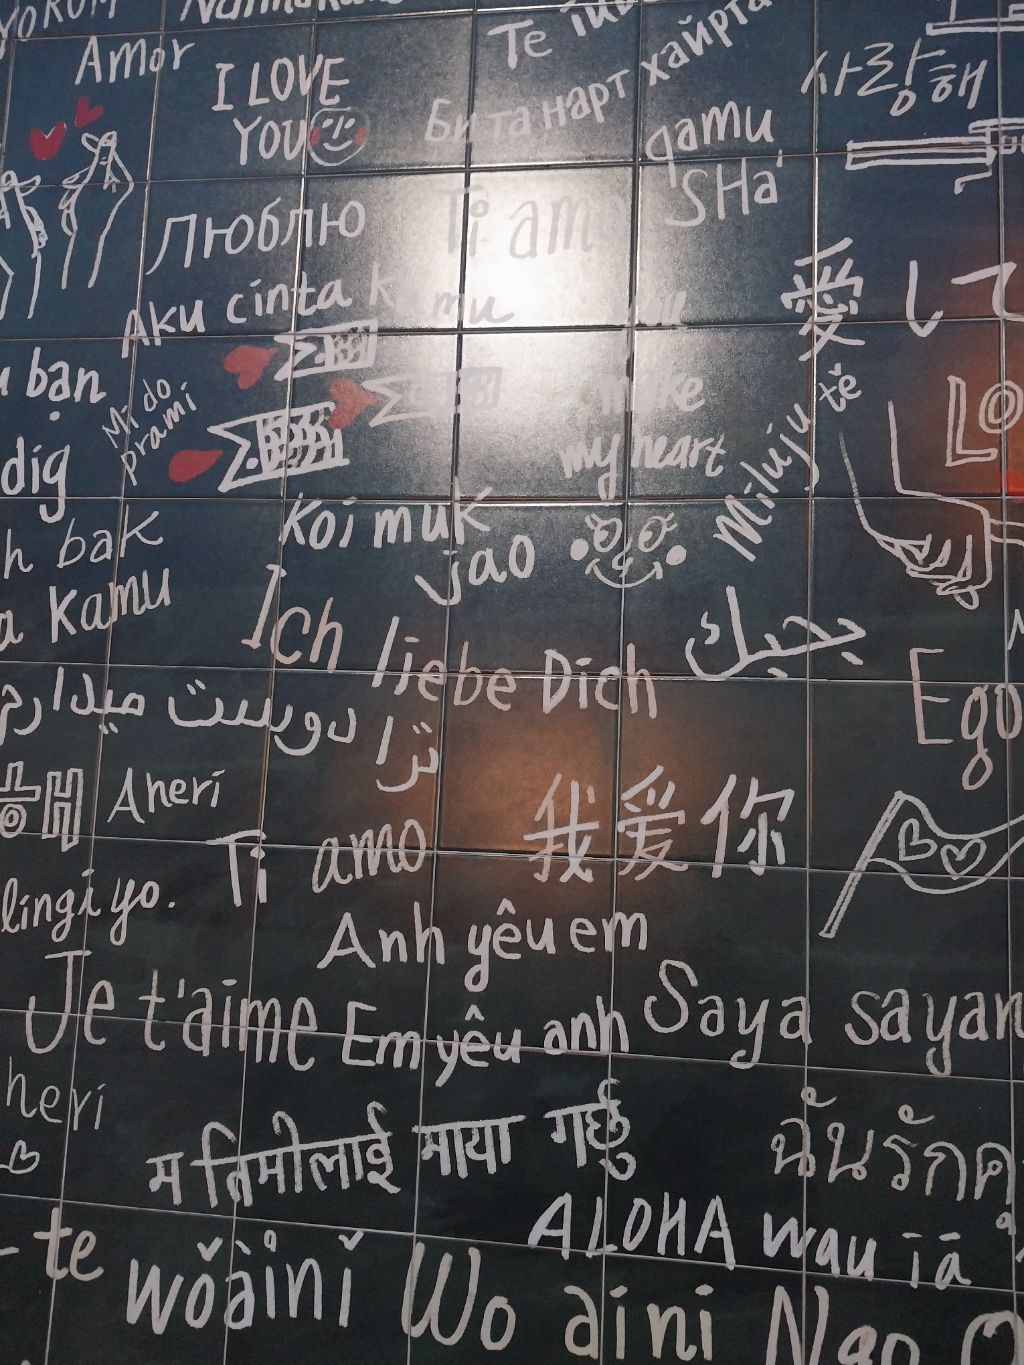 Amor
I LOVE
YOU
Те
Би та нарт хайрта
사랑해
qamu
SHa'
Люблю
Ti am
愛して
Aku cinta kamu
bạn
Mi do
prami
make
my heart
Miluju tě
Lo
dig
Koi muk
jao
bak
Kamu
Ich liebe Dich
بحبك
Ego
دوستت میدارم
ترا
Aheri
Ti amo
我爱你
lingi yo.
Anh yêu em
Je t'aime
Em yêu anh
Saya sayan
heri
म तिमीलाई माया गर्छु
ฉันรักค
ALOHA wau iā
- te
wǒàinǐ
Wo ai ni